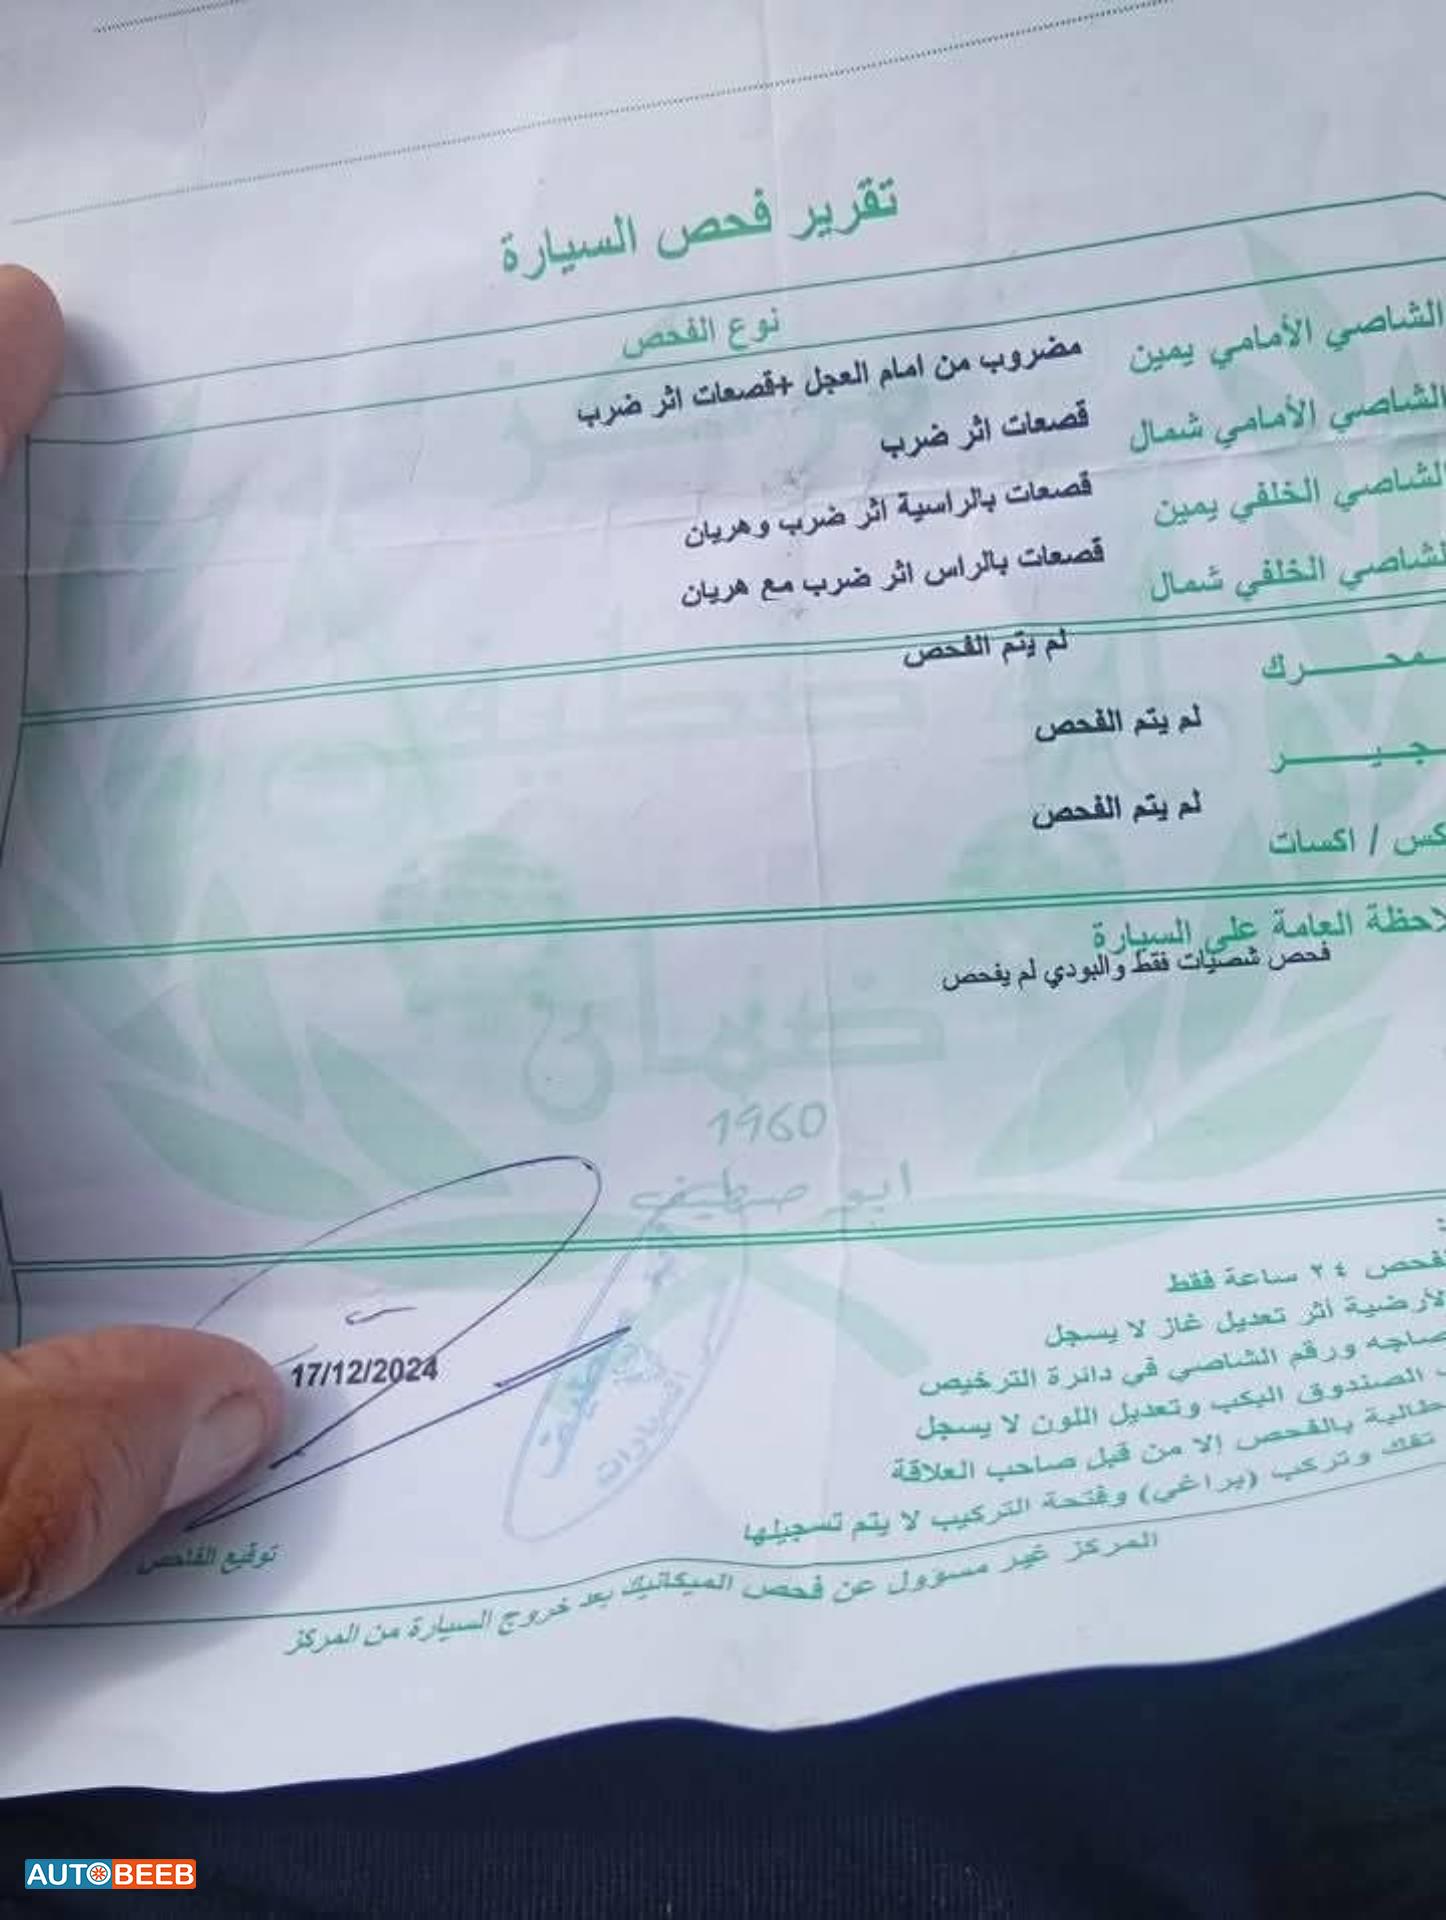 تقرير فحص السيارة
نوع الفحص
الشاصي الأمامي يمين مضروب من امام العجل +قصعات اثر ضرب
الشاصي الأمامي شمال قصعات اثر ضرب
الشاصي الخلفي يمين قصعات بالراسية اثر ضرب وهريان
لشاصي الخلفي شمال قصعات بالراس اثر ضرب مع هريان
محرك لم يتم الفحص
جير لم يتم الفحص
كس / اكسات لم يتم الفحص
لاحظة العامة على السيارة
فحص شصيات فقط والبودي لم يفحص
ضمان
1960
ابو صطيف
فحص ٢٤ ساعة فقط
لأرضية أثر تعديل غاز لا يسجل
صاجه ورقم الشاصي في دائرة الترخيص
الصندوق البكب وتعديل اللون لا يسجل
طالبة بالفحص إلا من قبل صاحب العلاقة
تفك وتركب (براغي) وفتحة التركيب لا يتم تسجيلها
17/12/2024
توقيع الفاحص
المركز غير مسؤول عن فحص الميكانيك بعد خروج السيارة من المركز
AUTOBEEB